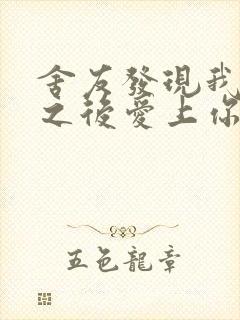 舍友發現我
之後愛上你
五色龍章